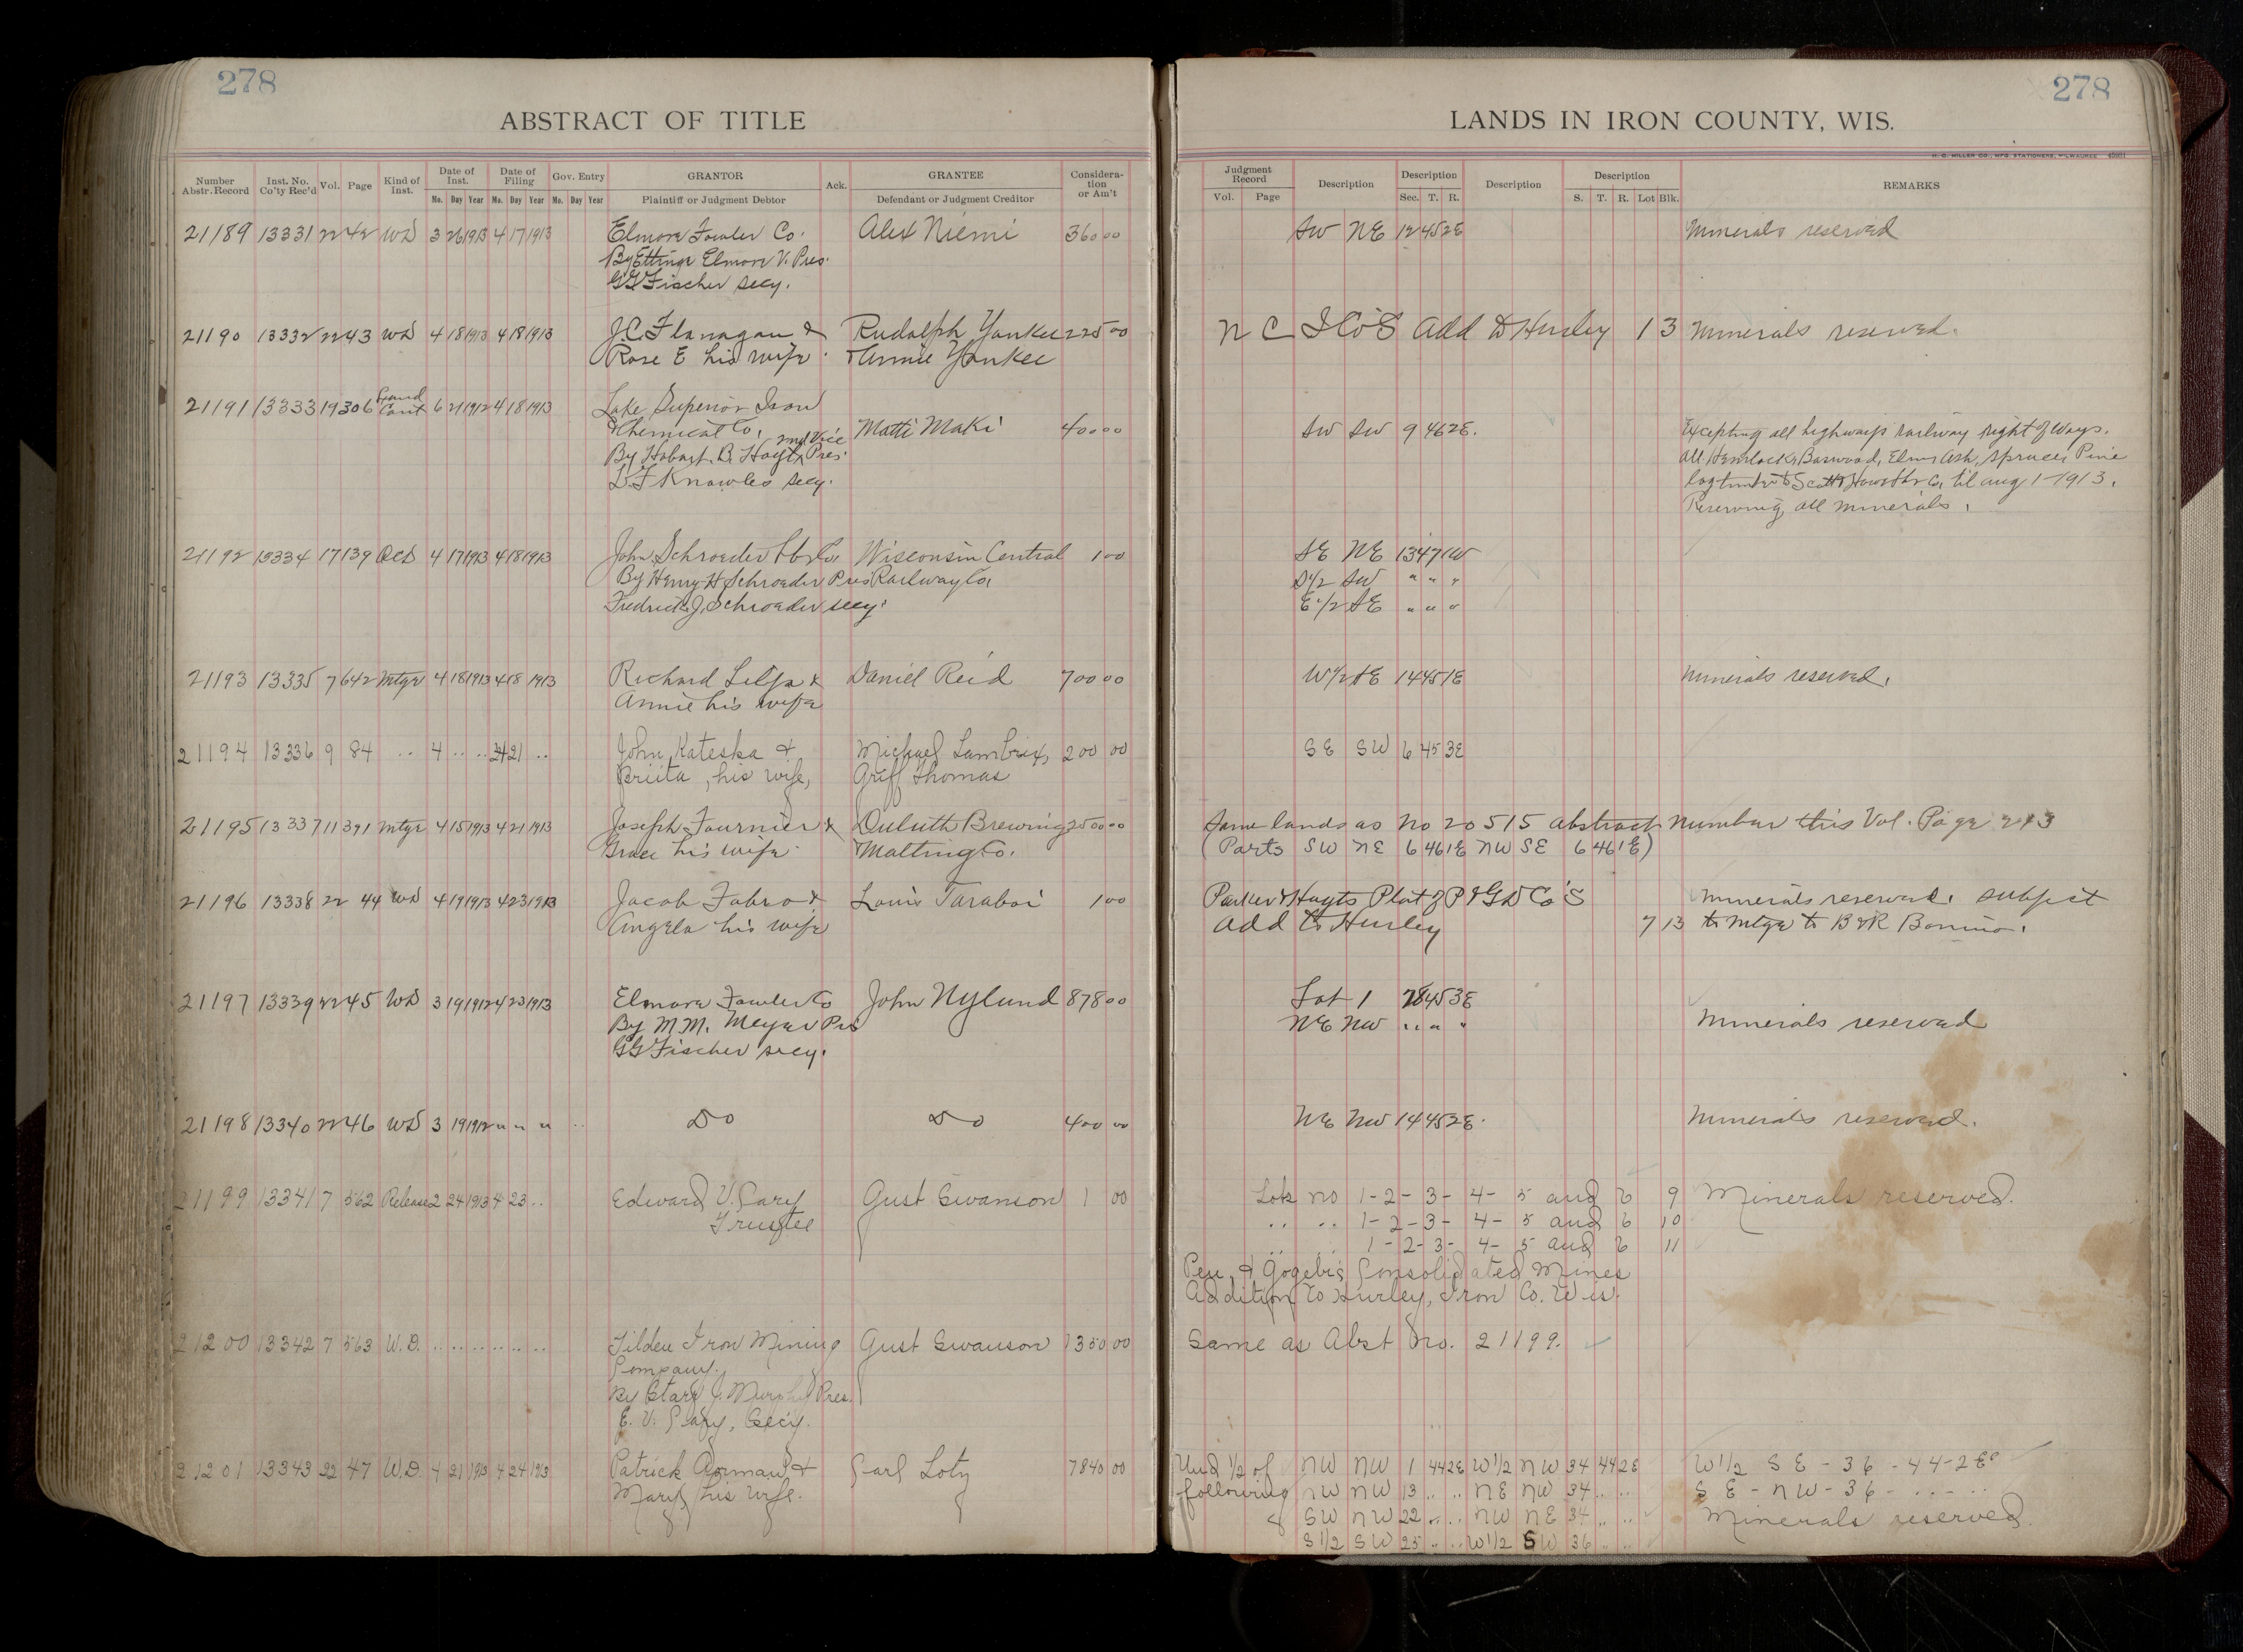 278
ABSTRACT OF TITLE
Number Abstr. Record Inst. No. Co'ty Rec'd Vol. Page Kind of Inst. Date of Inst. Date of Filing Gov. Entry GRANTOR Ack. GRANTEE Considera-tion or Am't
Mo. Day Year Mo. Day Year Mo. Day Year Plaintiff or Judgment Debtor Defendant or Judgment Creditor
21189 13331 22 42 WD 3 26 1913 4 17 1913 Elmore Fowler Co. Alex Niemi 360 00
By Ettinge Elmore V. Pres.
GG Fischer secy.
21190 13332 22 43 WD 4 18 1913 4 18 1913 J.C. Flanagan & Rudolph Yankee 225 00
Rose E his wife & Annie Yankee
21191 13333 19 306 Land Cont 6 21 1912 4 18 1913 Lake Superior Iron
& Chemical Co. Matti Maki 400 00
By Hobart B. Hoyt 2nd Vice Pres.
L.F. Knowles secy.
21192 13334 17 139 QCD 4 17 1913 4 18 1913 John Schroeder Lbr Co. Wisconsin Central 1 00
By Henry H Schroeder Pres Railway Co.
Fredrick J. Schroeder secy.
21193 13335 7 642 mtge 4 18 1913 4 18 1913 Richard & Daniel Reid 700 00
Annie his wife
21194 13336 9 84 .. 4 .. .. 4 21 .. John Kateska & Michael Lambrix, 200 00
Briita, his wife, Griff Thomas
21195 13337 11 391 mtge 4 15 1913 4 21 1913 Joseph Fournier & Duluth Brewing 2500 00
Grace his wife & Malting Co.
21196 13338 22 44 WD 4 19 1913 4 23 1913 Jacob Fabro & Louis Taraboi 1 00
Angela his wife
21197 13339 22 45 WD 3 19 1912 4 23 1913 Elmore Fowler Co John Nylund 878 00
By M.M. Meyer Pres
GG Fischer secy.
21198 13340 22 46 WD 3 19 1912 " " " Do Do 400 00
21199 13341 7 562 Release 2 24 1913 4 23 .. Edward V. Gary Gust Swanson 1 00
Trustee
21200 13342 7 563 W.D. .. .. .. .. .. .. Tilden Iron Mining Gust Swanson 1350 00
Company.
By Starr J. Murphy Pres.
E. V. Gary, Secy.
21201 13343 22 47 W.D. 4 21 1913 4 24 1913 Patrick Gorman & Carl Lotz 7840 00
Mary his wife.
278
LANDS IN IRON COUNTY, WIS.
H. G. MILLER CO., MFG. STATIONERS, MILWAUKEE
Judgment Record Description Description Description Description REMARKS
Vol. Page Sec. T. R. S. T. R. Lot Blk.
SW NE 12 45 2E Minerals reserved
N C I Co's Add to Hurley 1 3 Minerals reserved.
SW SW 9 46 2E. Excepting all highways railway right of ways.
all Hemlock, Basswood, Elm, Ash, Spruce, Pine
log timber to Scott & Howe Lbr Co. til Aug 1-1913.
Reserving all minerals.
SE NE 13 47 1W
S1/2 SW " " "
E1/2 SE " " "
W1/2 SE 14 45 1E Minerals reserved.
SE SW 6 45 3E
Same lands as No 20515 abstract number this Vol. Page 213
(Parts SW NE 6 46 1E NW SE 6 46 1E)
Parker & Hoyts Plat of P & G D Co's Minerals reserved. subject
Add to Hurley 7 13 to mtge to B & R Bonino.
Lot 1 28 45 3E
NE NW " " " Minerals reserved
NE NW 14 45 2E. Minerals reserved.
Lots no 1-2-3-4-5 and 6 9 Minerals reserved.
.. .. 1-2-3-4-5 and 6 10
.. 1-2-3-4-5 and 6 11
Pen. & Gogebic Consolidated Mines
Addition to Hurley, Iron Co. Wis.
Same as Abst No. 21199.
Und 1/2 of NW NW 1 44 2E W1/2 NW 34 44 2E W1/2 SE - 36 - 44 - 2E
following NW NW 13 .. .. NE NW 34 .. .. SE - NW - 36 - .. - ..
SW NW 22 .. .. NW NE 34 .. .. Minerals reserved.
S1/2 SW 25 .. .. W1/2 SW 36 .. ..